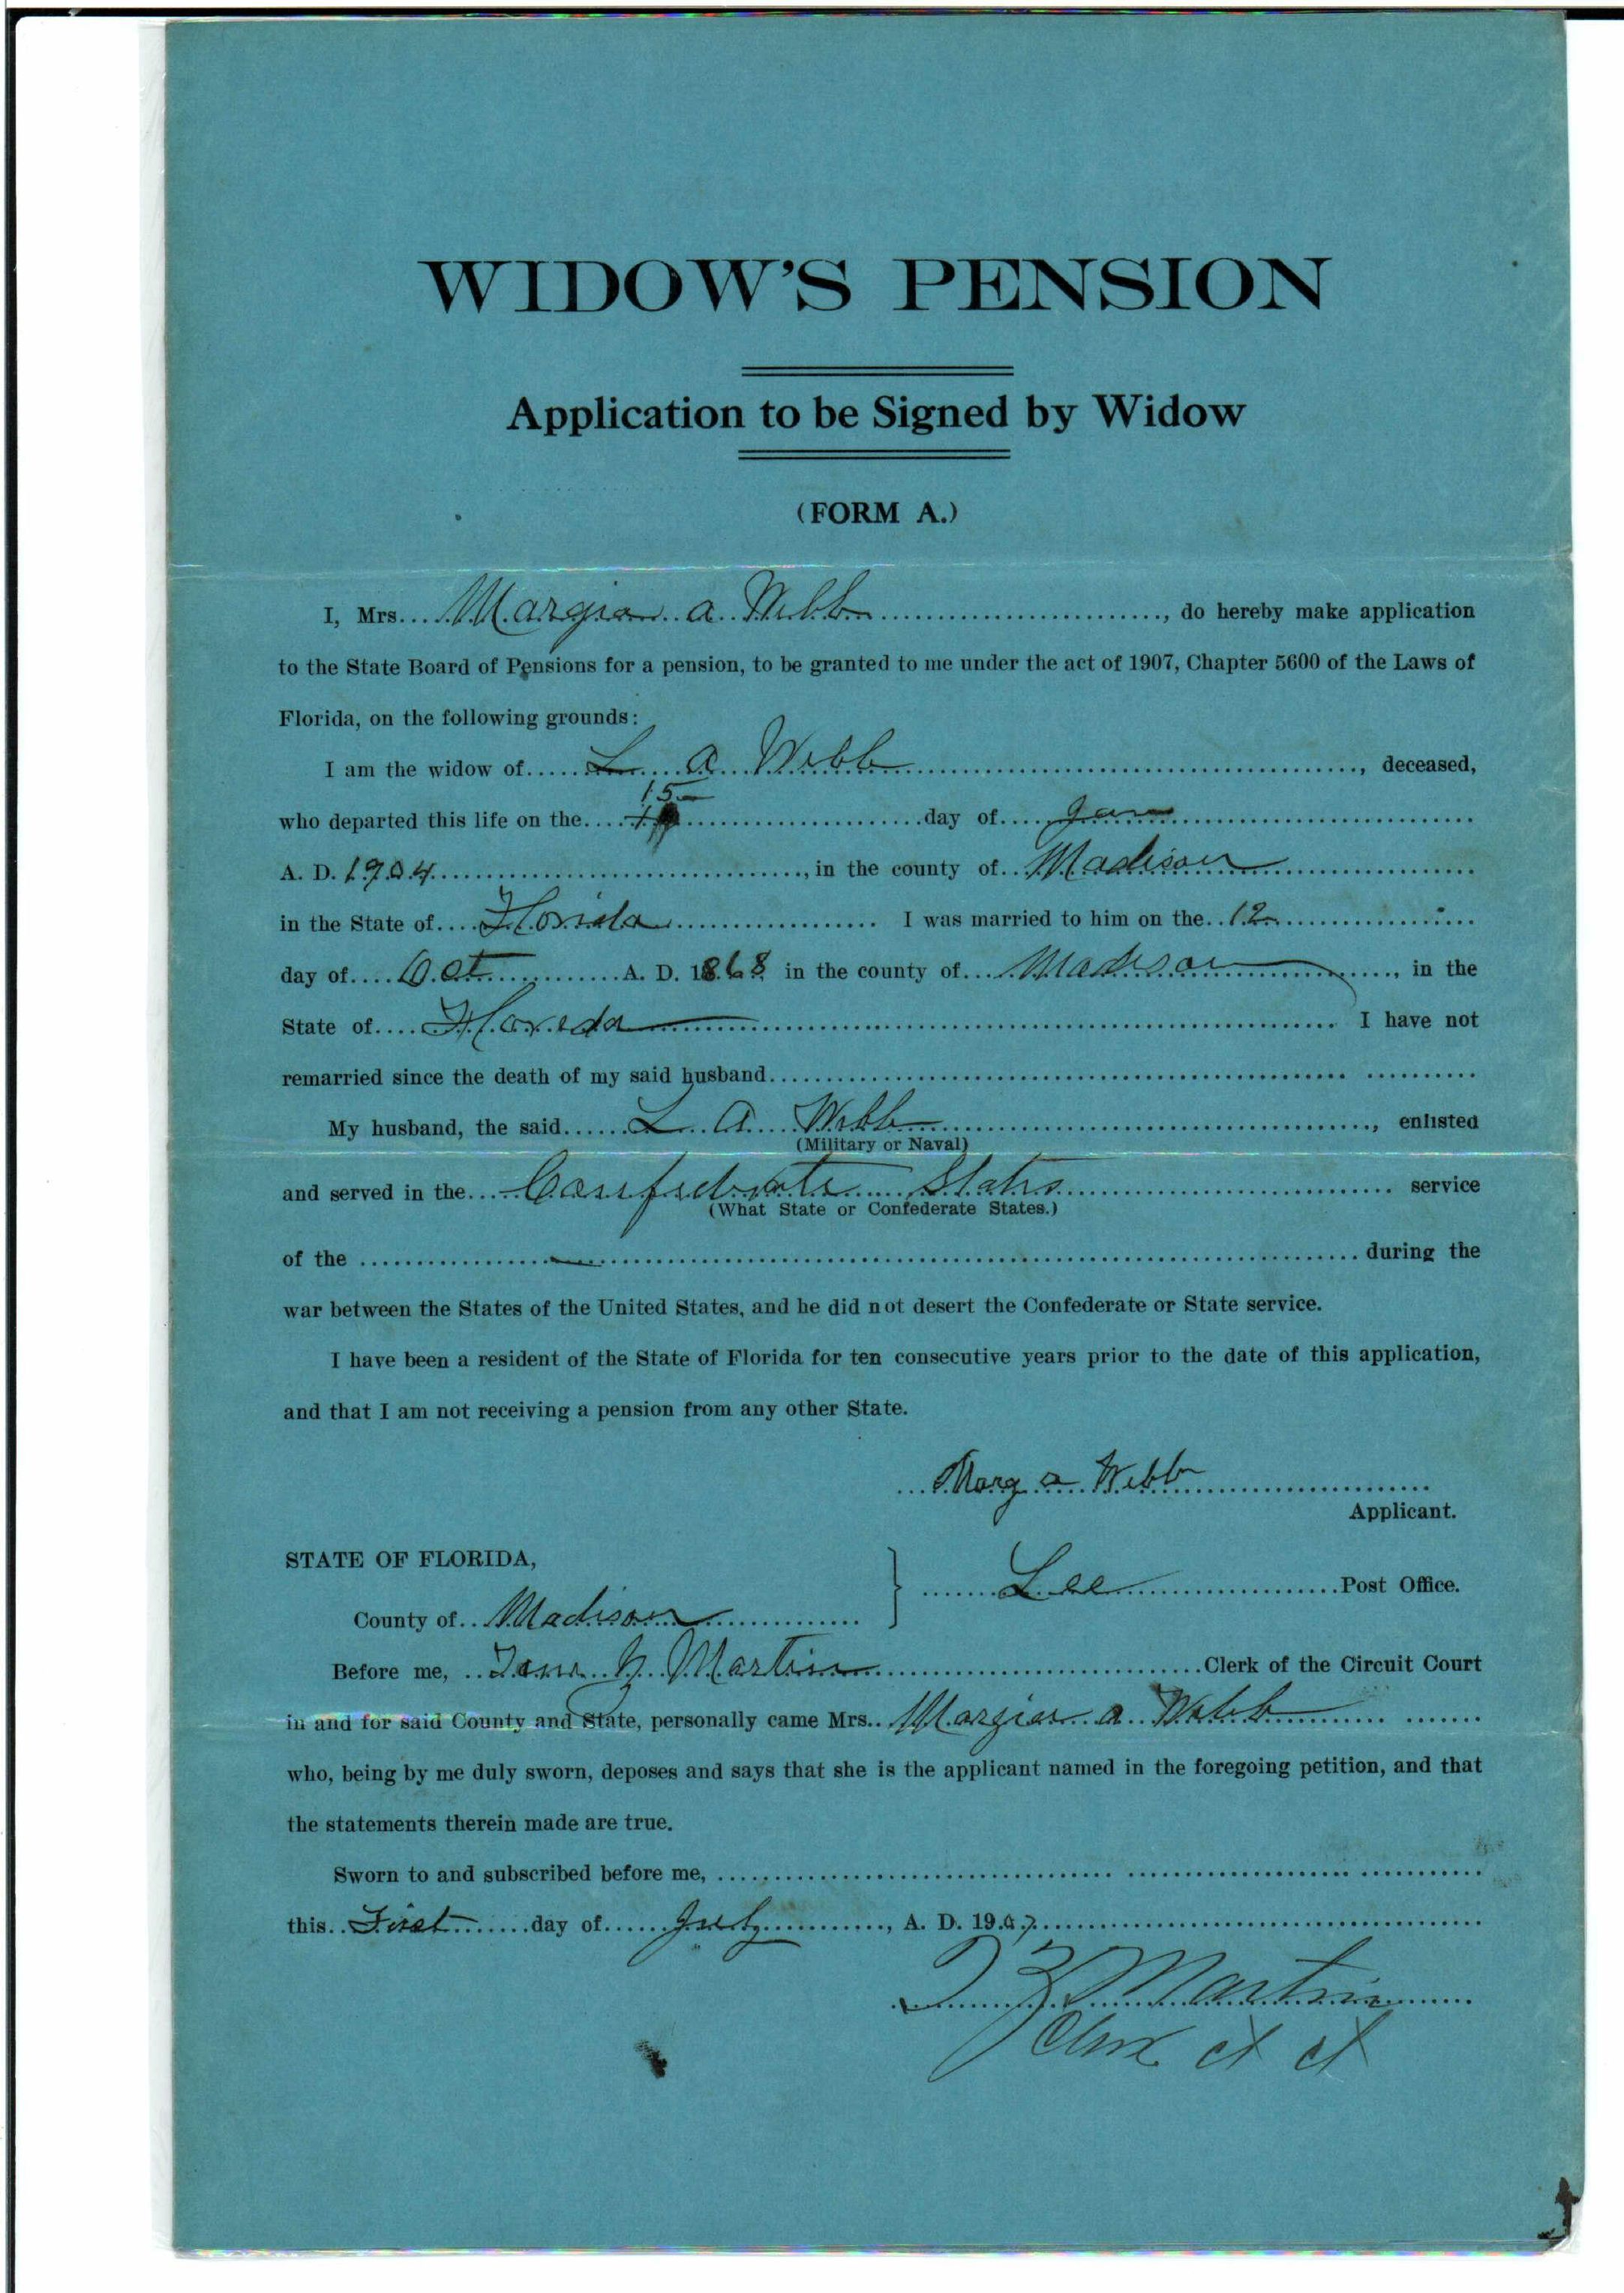 WIDOW'S PENSION
Application to be Signed by Widow
(FORM A.)
I, Mrs. Margian a. Webb, do hereby make application
to the State Board of Pensions for a pension, to be granted to me under the act of 1907, Chapter 5600 of the Laws of
Florida, on the following grounds:
I am the widow of L a Webb, deceased,
15
who departed this life on the day of Jan
A. D. 1904, in the county of Madison
in the State of Florida I was married to him on the 12
day of Oct A. D. 1868 in the county of Madison, in the
State of Florida I have not
remarried since the death of my said husband
My husband, the said L A Webb, enlisted
(Military or Naval)
and served in the Confederate States service
(What State or Confederate States.)
of the during the
war between the States of the United States, and he did not desert the Confederate or State service.
I have been a resident of the State of Florida for ten consecutive years prior to the date of this application,
and that I am not receiving a pension from any other State.
Marg a Webb
Applicant.
STATE OF FLORIDA,
Lee Post Office.
County of Madison
Before me, Martin Clerk of the Circuit Court
in and for said County and State, personally came Mrs. Margian a Webb
who, being by me duly sworn, deposes and says that she is the applicant named in the foregoing petition, and that
the statements therein made are true.
Sworn to and subscribed before me,
this First day of July, A. D. 1907
Martin
Clerk ct ct